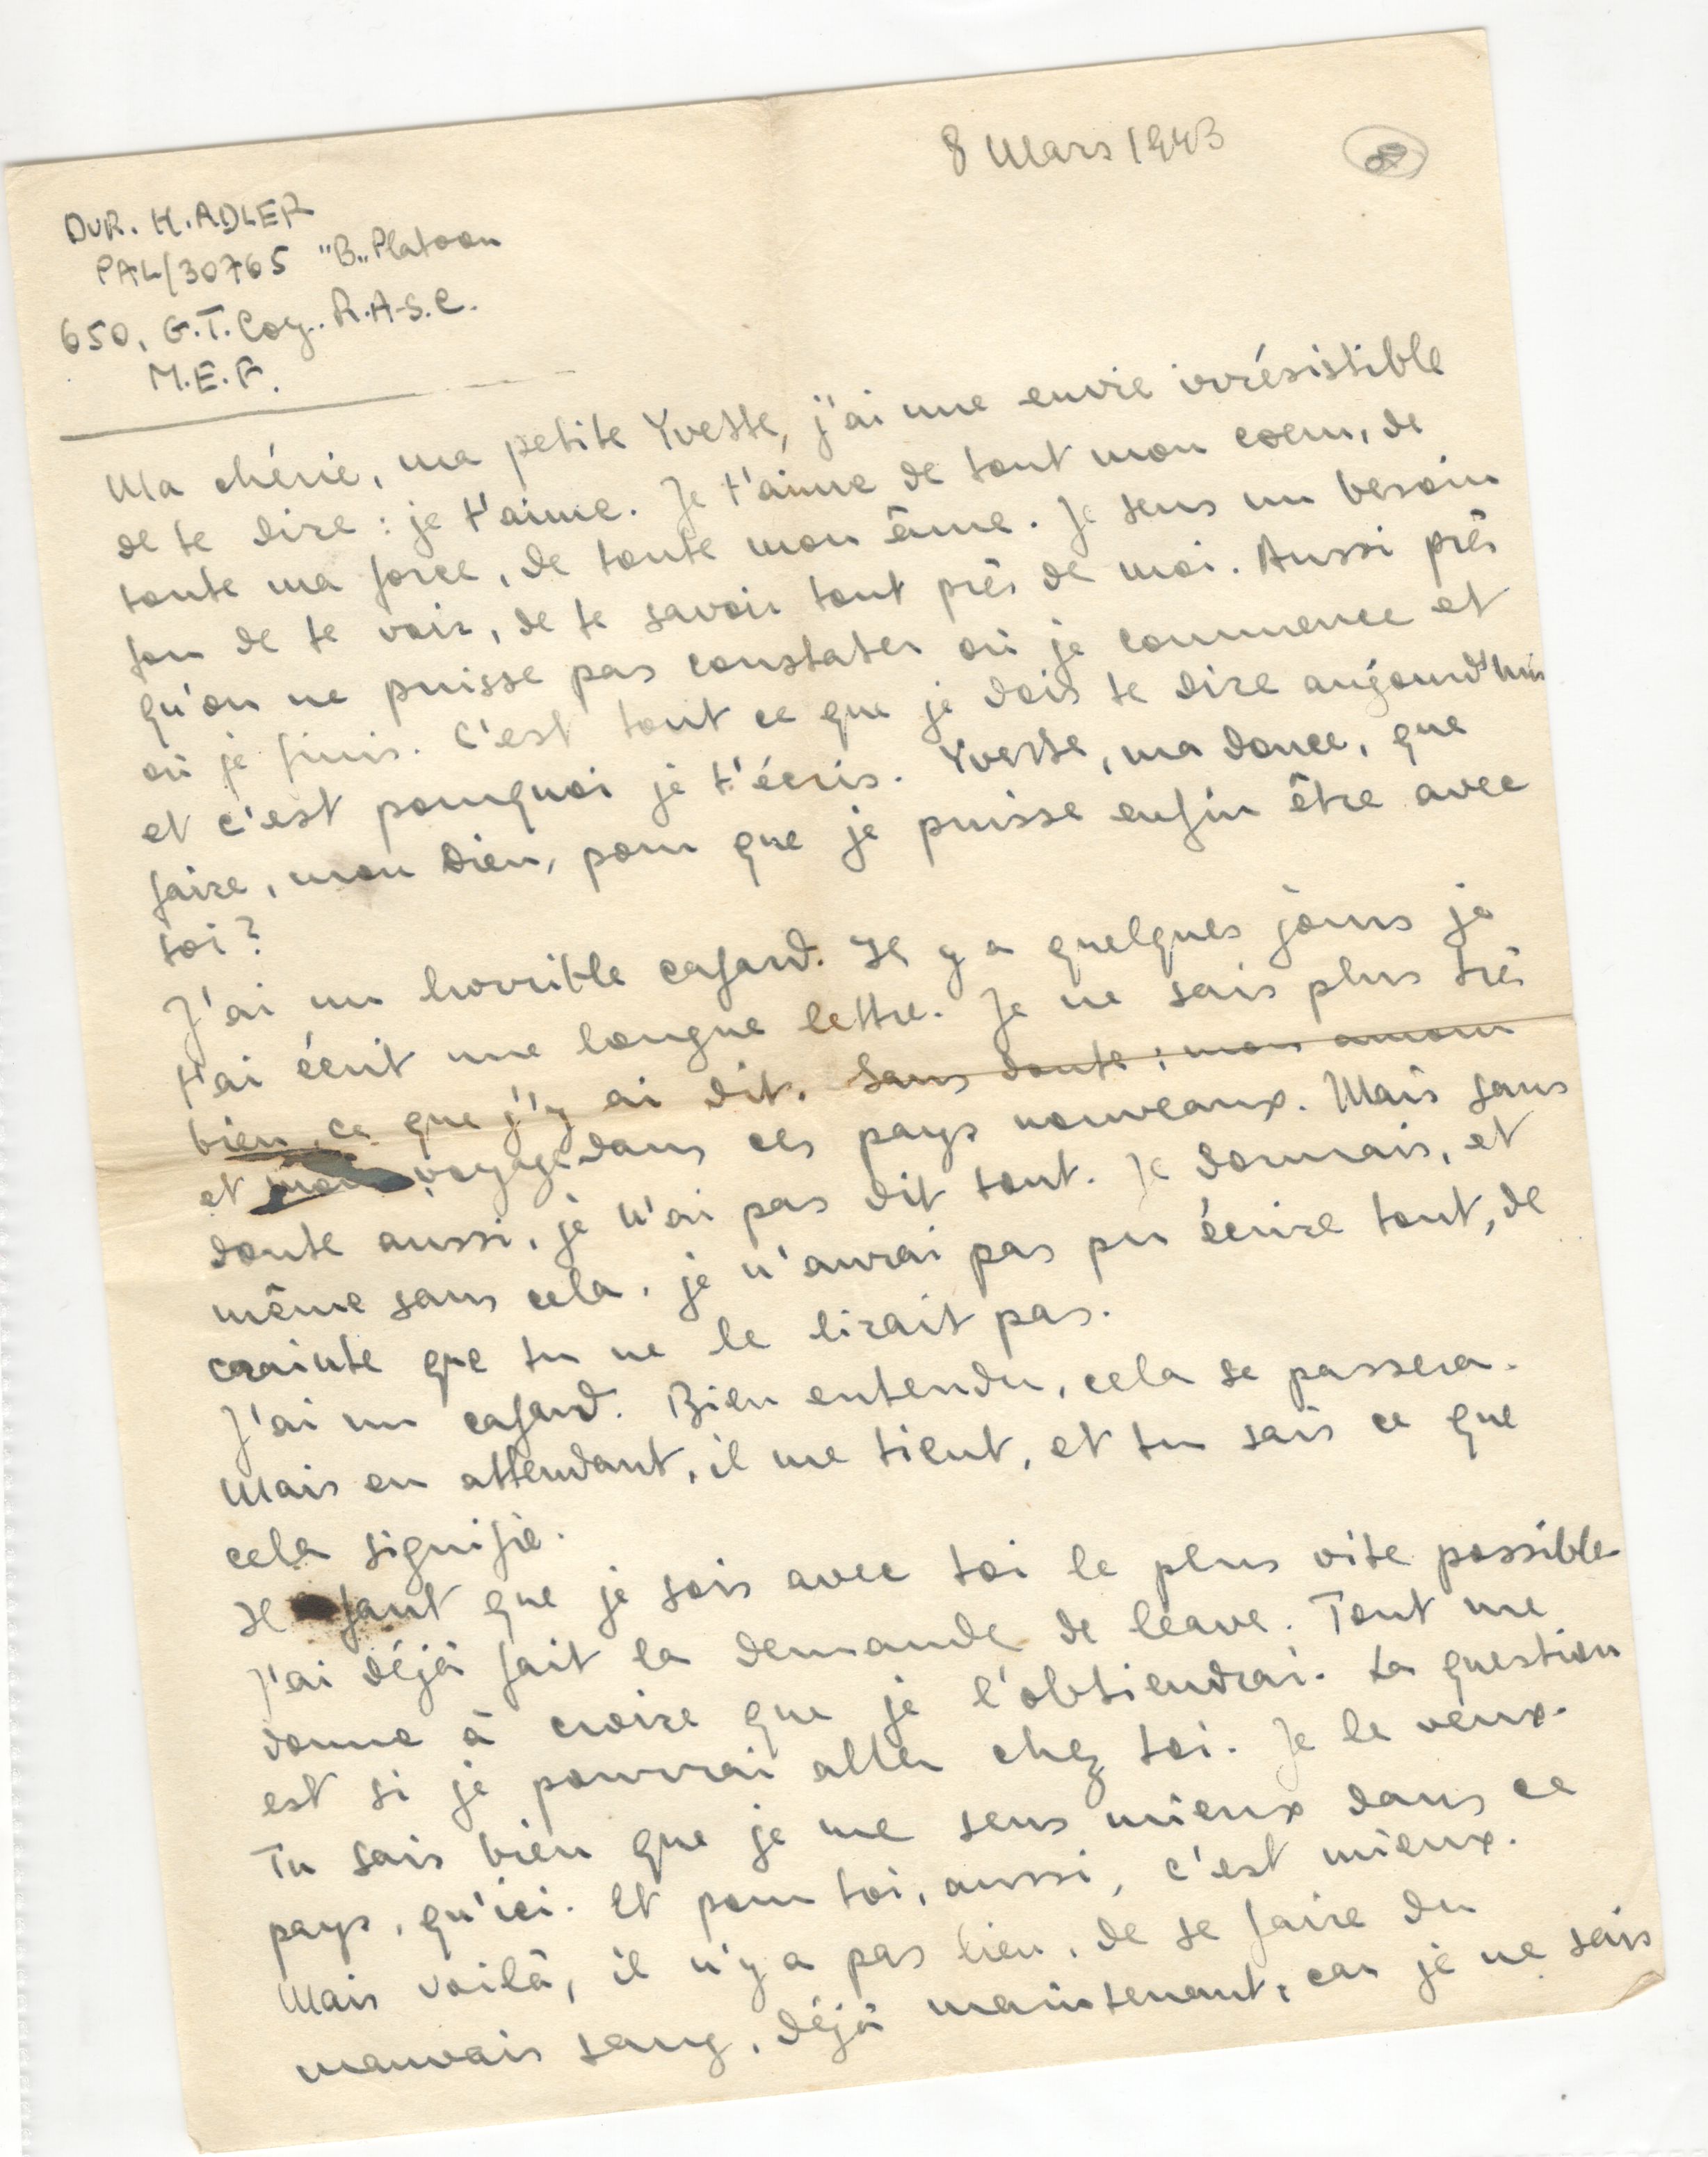 8 Mars 1943
DVR. H. ADLER
PAL/30765 "B" Platoon
650, G.T. Coy. R.A.S.C.
M.E.F.
Ma chérie, ma petite Yvette, j'ai une envie irrésistible
de te dire : je t'aime. Je t'aime de tout mon coeur, de
toute ma force, de toute mon âme. Je sens un besoin
fou de te voir, de te savoir tout près de moi. Aussi près
qu'on ne puisse pas constater où je commence et
où je finis. C'est tout ce que je dois te dire aujourd'hui
et c'est pourquoi je t'écris. Yvette, ma douce, que
faire, mon Dieu, pour que je puisse enfin être avec
toi ?
J'ai un horrible cafard. Il y a quelques jours je
t'ai écrit une longue lettre. Je ne sais plus très
bien ce que j'y ai dit. Sans doute : mon amour
et mon voyage dans ces pays nouveaux. Mais sans
doute aussi, je n'ai pas dit tout. Je dormais, et
même sans cela, je n'aurai pas pu écrire tout, de
crainte que tu ne le lirait pas.
J'ai un cafard. Bien entendu, cela se passera.
Mais en attendant, il me tient, et tu sais ce que
cela signifie.
Il faut que je sois avec toi le plus vite possible
J'ai déjà fait la demande de leave. Tout me
donne à croire que je l'obtiendrai. La question
est si je pourrai aller chez toi. Je le veux.
Tu sais bien que je me sens mieux dans ce
pays, qu'ici. Et pour toi, aussi, c'est mieux.
Mais voilà, il n'y a pas lieu, de se faire du
mauvais sang, déjà maintenant, car je ne sais